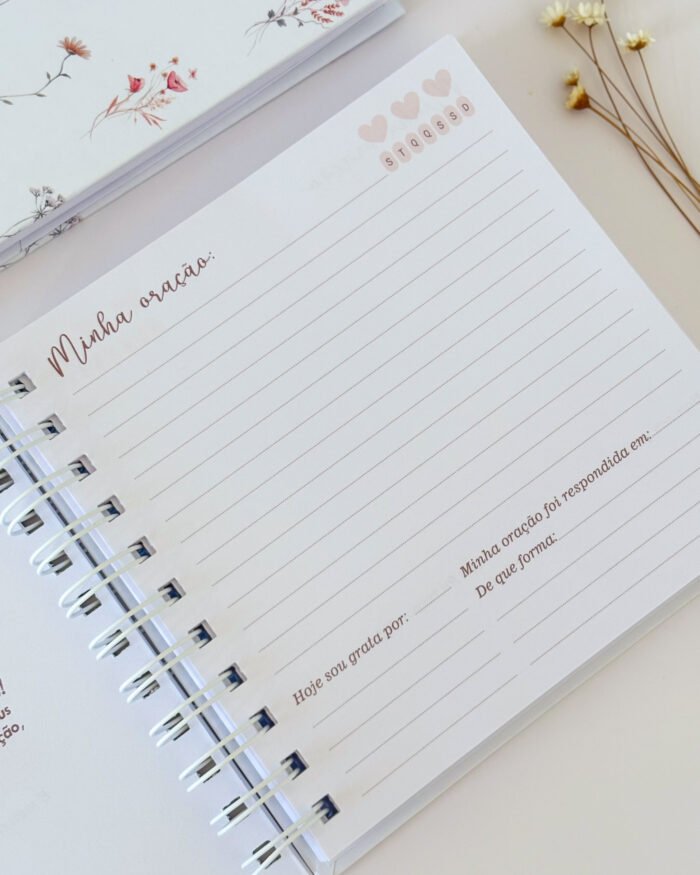 S T Q Q S S D
Minha oração:
Minha oração foi respondida em:
De que forma:
Hoje sou grata por:
!
us
ção,